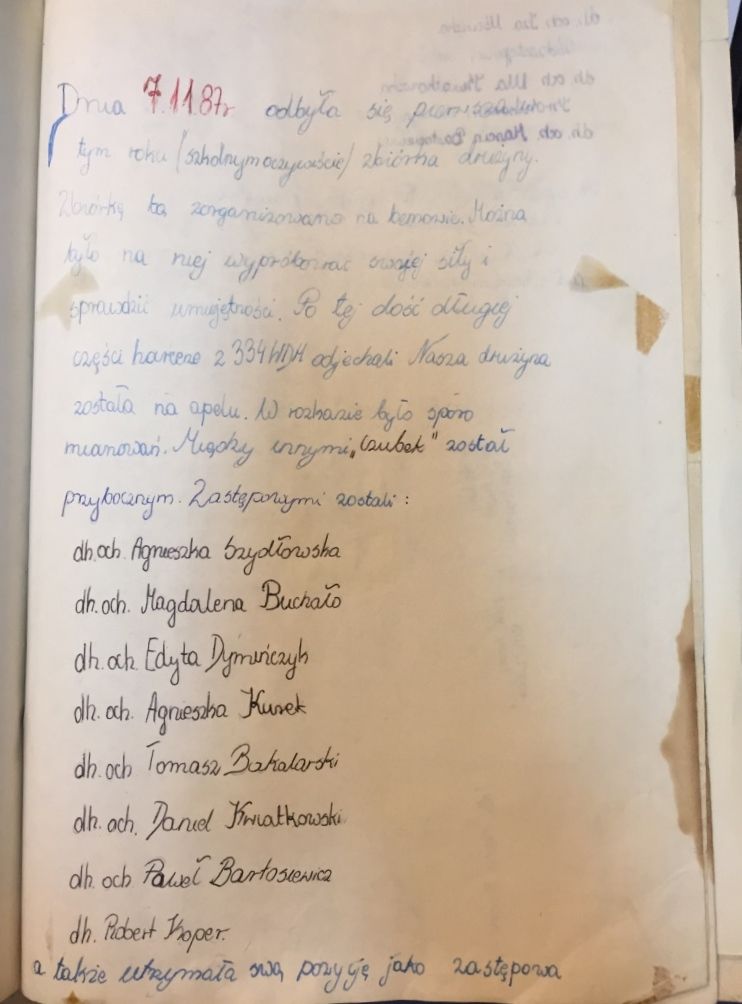 Dnia 7.11.87r odbyła się pierwsza w
tym roku /szkolnym oczywiście/ zbiórka drużyny.
Zbiórkę tą zorganizowano na bemowie. Można
było na niej wypróbować swojej siły i
sprawdzić umiejętności. Po tej dość długiej
części harcerze z 334 WDH odjechali Nasza drużyna
została na apelu. W rozkazie było sporo
mianowań. Między innymi „Czubek" został
przybocznym. Zastępowymi zostali:
dh. och. Agnieszka Szydłowska
dh. och. Magdalena Buchało
dh. och. Edyta Dymińczyk
dh. och. Agnieszka Kurek
dh. och Tomasz Bakalarski
dh. och. Daniel Kwiatkowski
dh. och Paweł Bartosiewicz
dh. Robert Koper.
a także utrzymała swą pozycję jako zastępowa